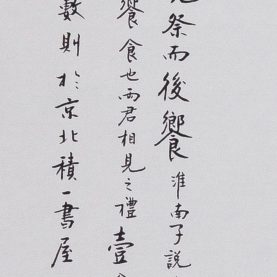 祭而後饗淮南子說
饗食也兩君相見之禮壹
數則於京北積一書屋